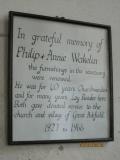 In grateful memory of
Philip & Annie Watkin
the furnishings in the sanctuary
were renewed.
He was for 40 years Churchwarden
and for many years Lay Reader here.
Both gave devoted service to the
church and village of Great
1927 to 1966